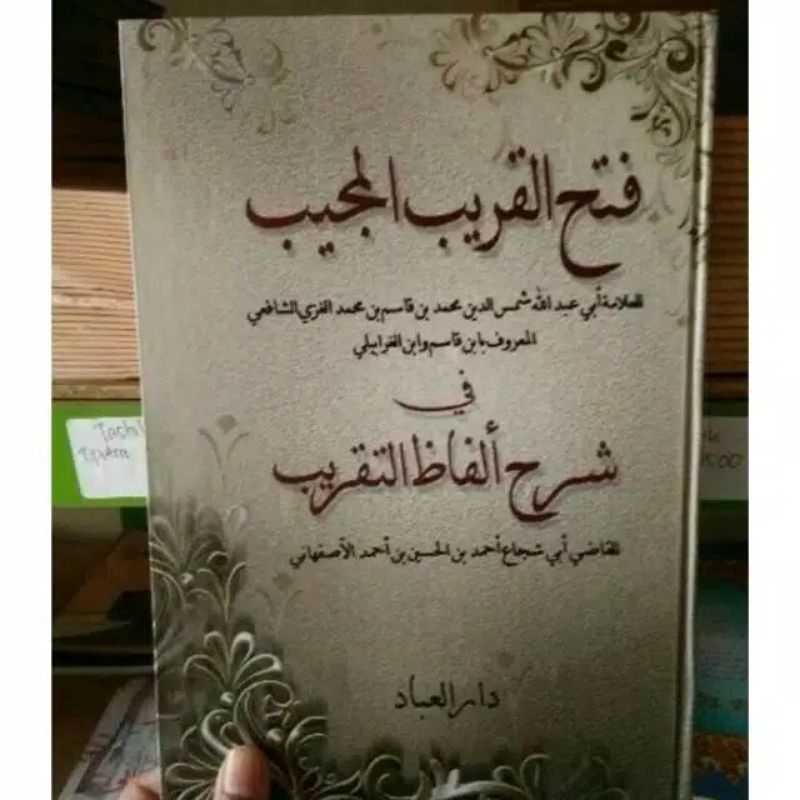 فتح القريب المجيب
للعلامة أبي عبد الله شمس الدين محمد بن قاسم بن محمد الغزي الشافعي
المعروف بابن قاسم وابن الغرابيلي
في
شرح ألفاظ التقريب
للقاضي أبي شجاع أحمد بن الحسين بن أحمد الأصفهاني
دار العباد